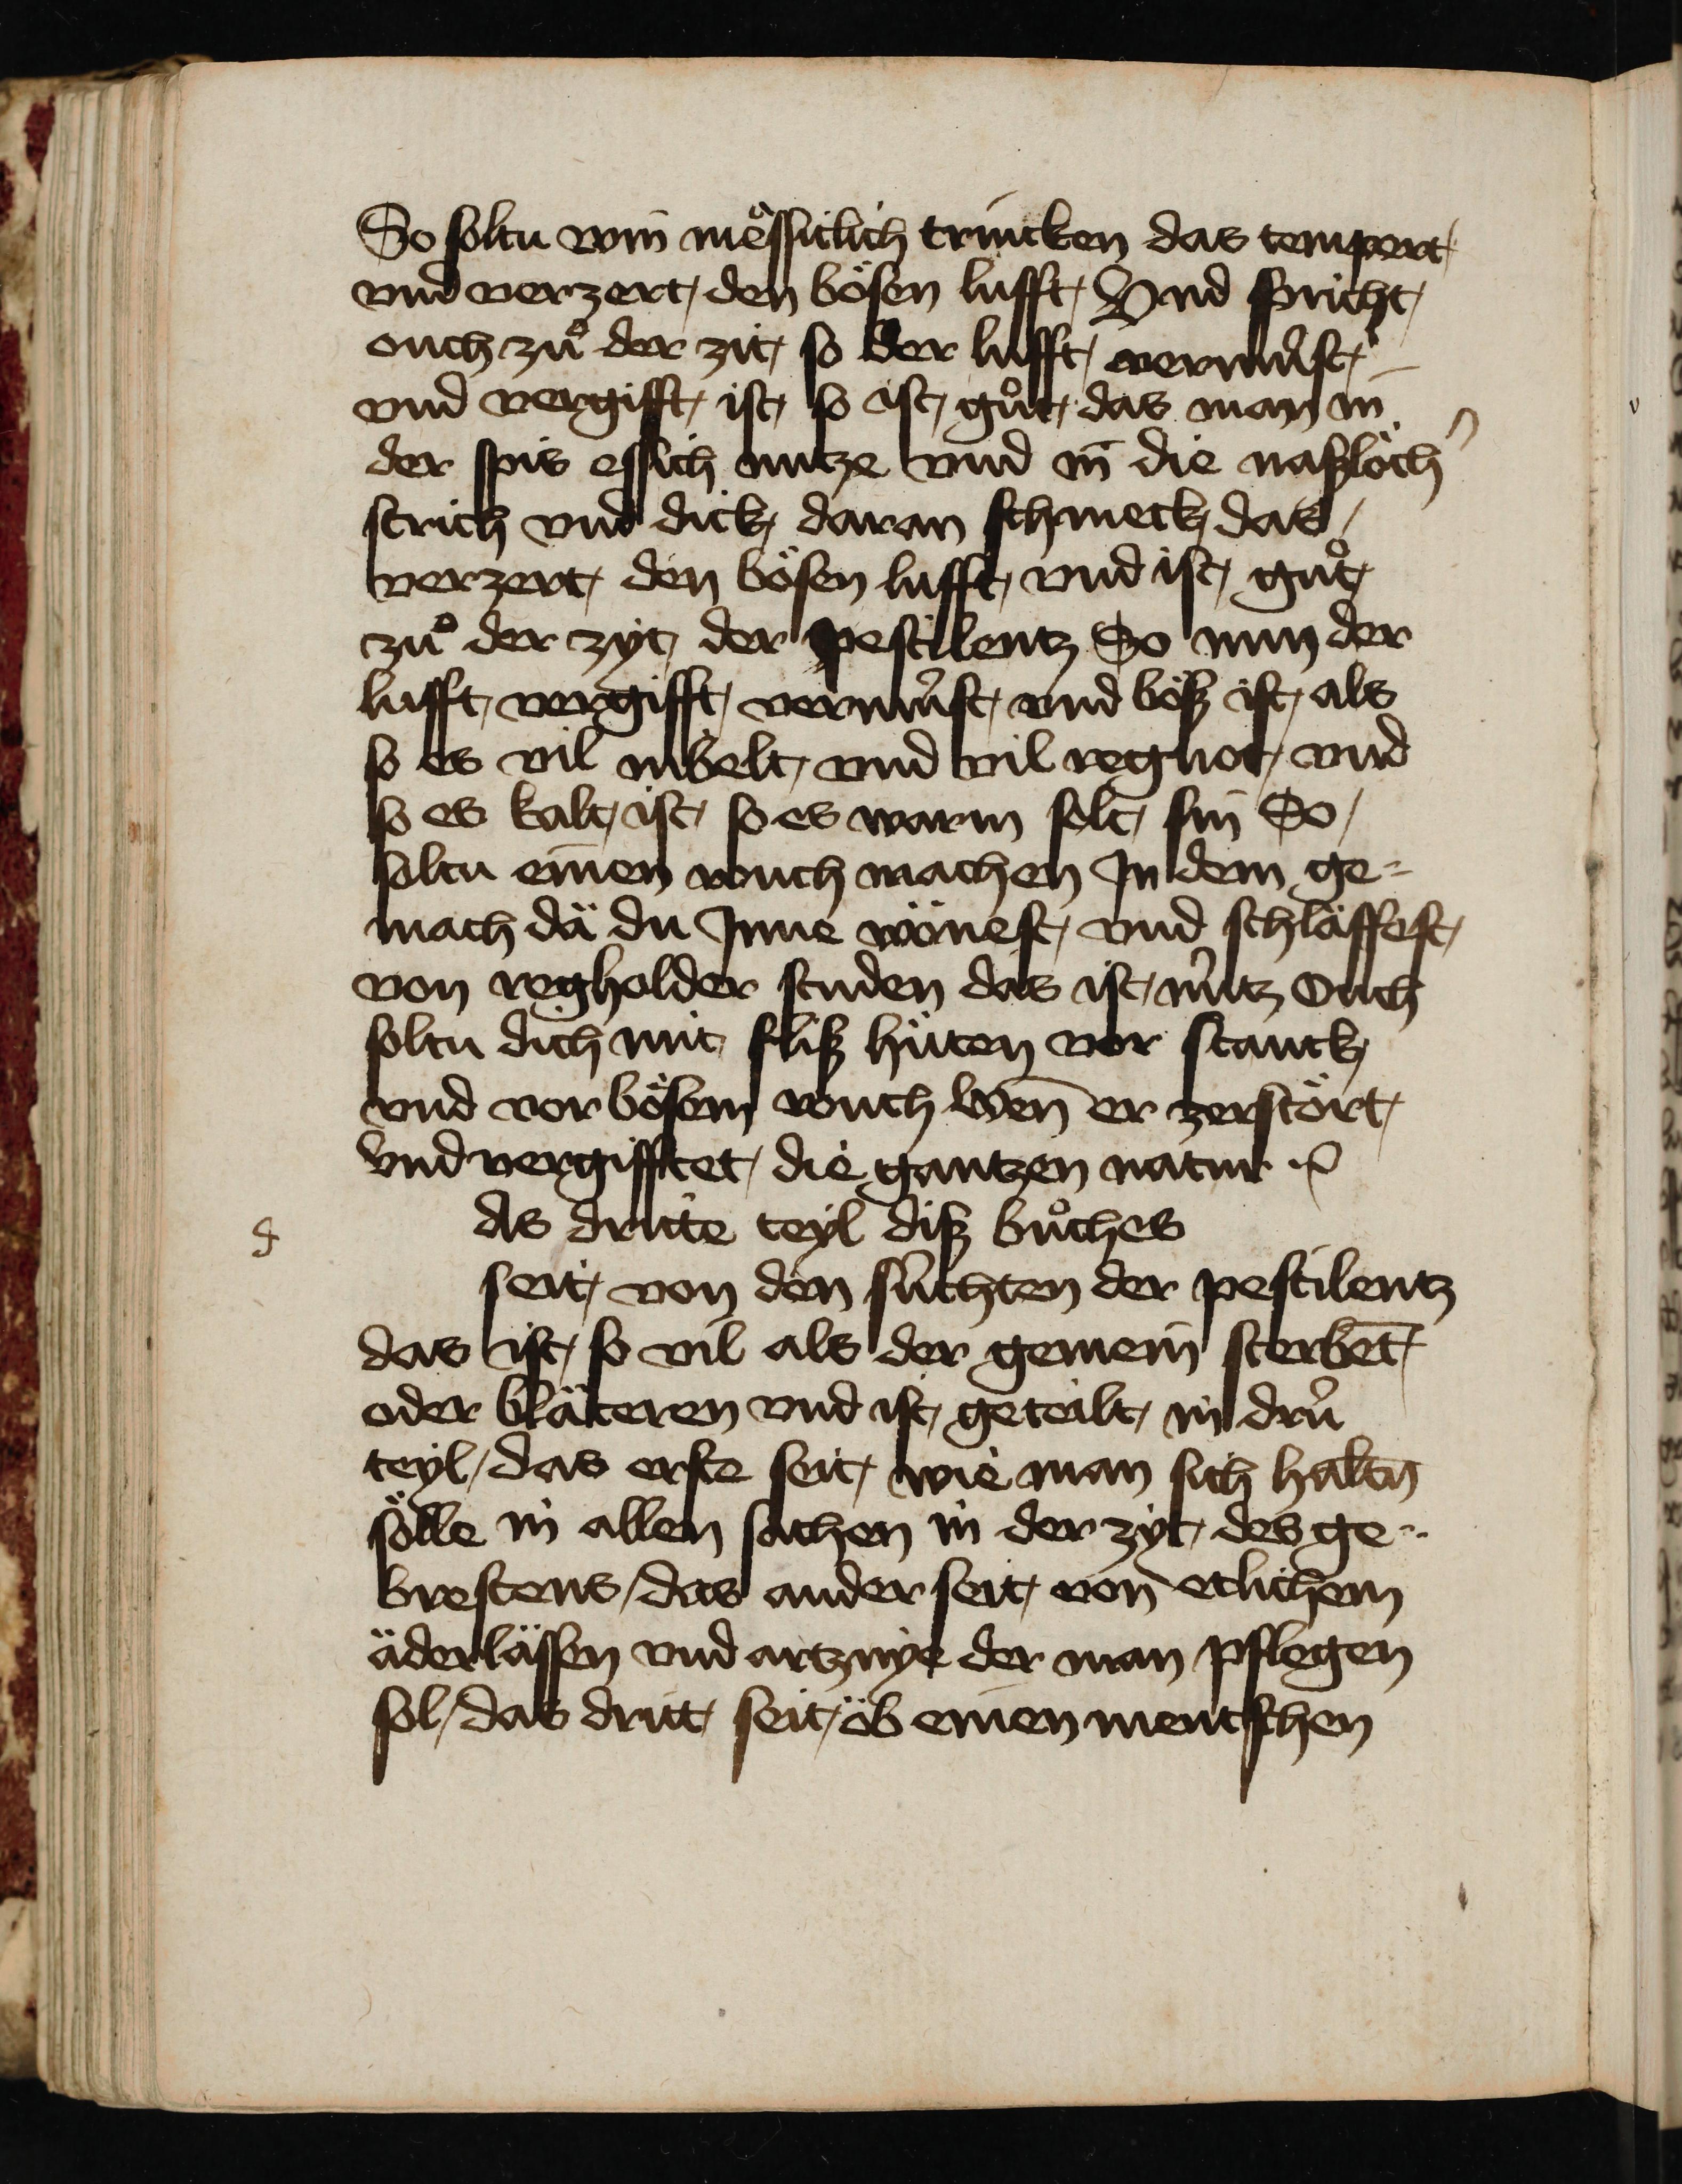 So soltu win mëssiclich trincken das tempert
vnd verzert den bösen lufft Vnd spricht
ouch zuͦ der zit so der lufft verwuͤst
vnd vergifft ist so ist guͦt das man in
der spis essich nutze vnd in die naßlöch
strich vnd dick daran schmeck das
verzert den bösen lufft vnd ist guͦt
zuͦ der zyt der pestilentz So nun der
lufft vergifft verwuͤst vnd böß ist als
so es vil nibelt vnd vil regnot vnd
so es kalt ist so es warm solt sin So
soltu einen rouch machen In dem ge=
mach dä du Inne wönest vnd schläffest
von regholder studen das ist nuͤtz Ouch
soltu dich mit fliß hüten vor stanck
vnd vor bösem rouch Wen̄ er zerstört
vnd vergifftet die gantzen natur
d
As dritte teyl diß buͦches
seit von den suͤchten der pestilentz
das ist so vil als der gemein sterbet̄
oder bläteren vnd ist geteilt in druͤ
teyl / das erste seit wie man sich haltn̄
sölle in allen sachen in der zyt des ge=
brestens / das ander seit von etlichem
äderlässen vnd artznye der man pflegen
sol / das dritt seit öb einen mentschen